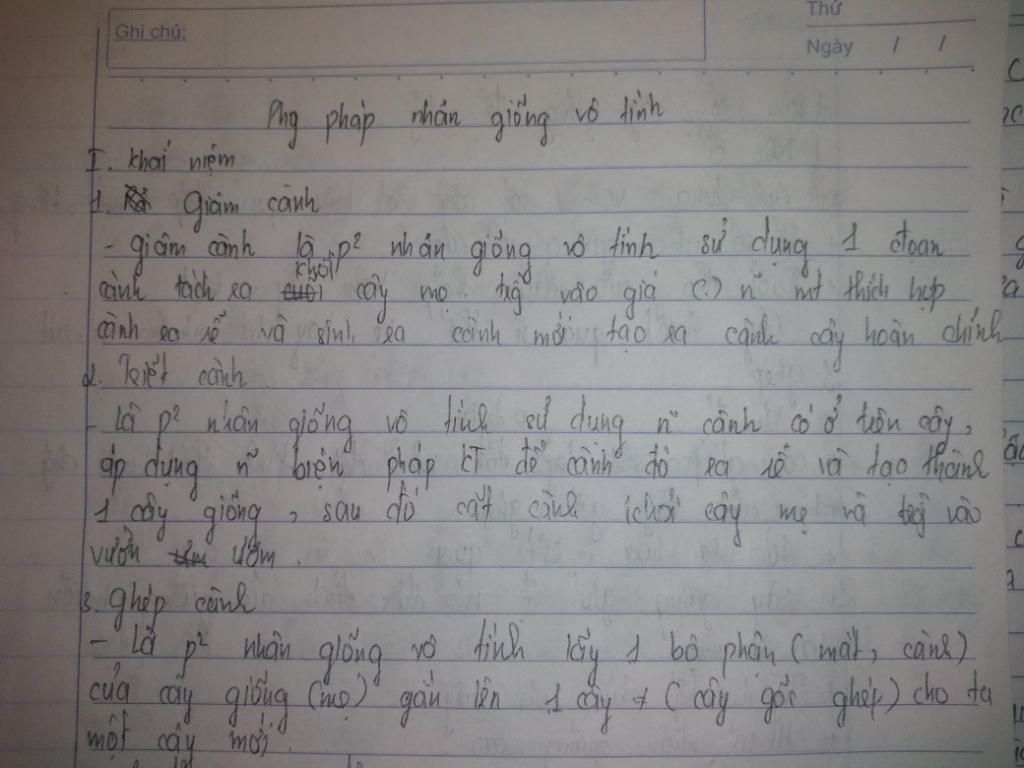 Ghi chú:
Thứ
Ngày / /
Phg pháp nhân giống vô tính
I. Khái niệm
1. Giâm cành
- giâm cành là p² nhân giống vô tính sử dụng 1 đoạn
khỏi
cành tách ra cây mẹ. trồg vào giá (:) ~ mt thích hợp
cành ra rễ và sinh ra cành mới tạo ra cành cây hoàn chỉnh
2. Triết cành
- Là p² nhân giống vô tính sử dụng ~ cành có ở trên cây,
áp dụng ~ biện pháp kT để cành đó ra rễ và tạo thành
1 cây giống, sau đó cắt cành khỏi cây mẹ và trồg vào
vườn ươm.
3. ghép cành
- Là p² nhân giống vô tính lấy 1 bộ phận (mắt, cành)
của cây giống (mẹ) gắn lên 1 cây ≠ (cây gốc ghép) cho ta
một cây mới.